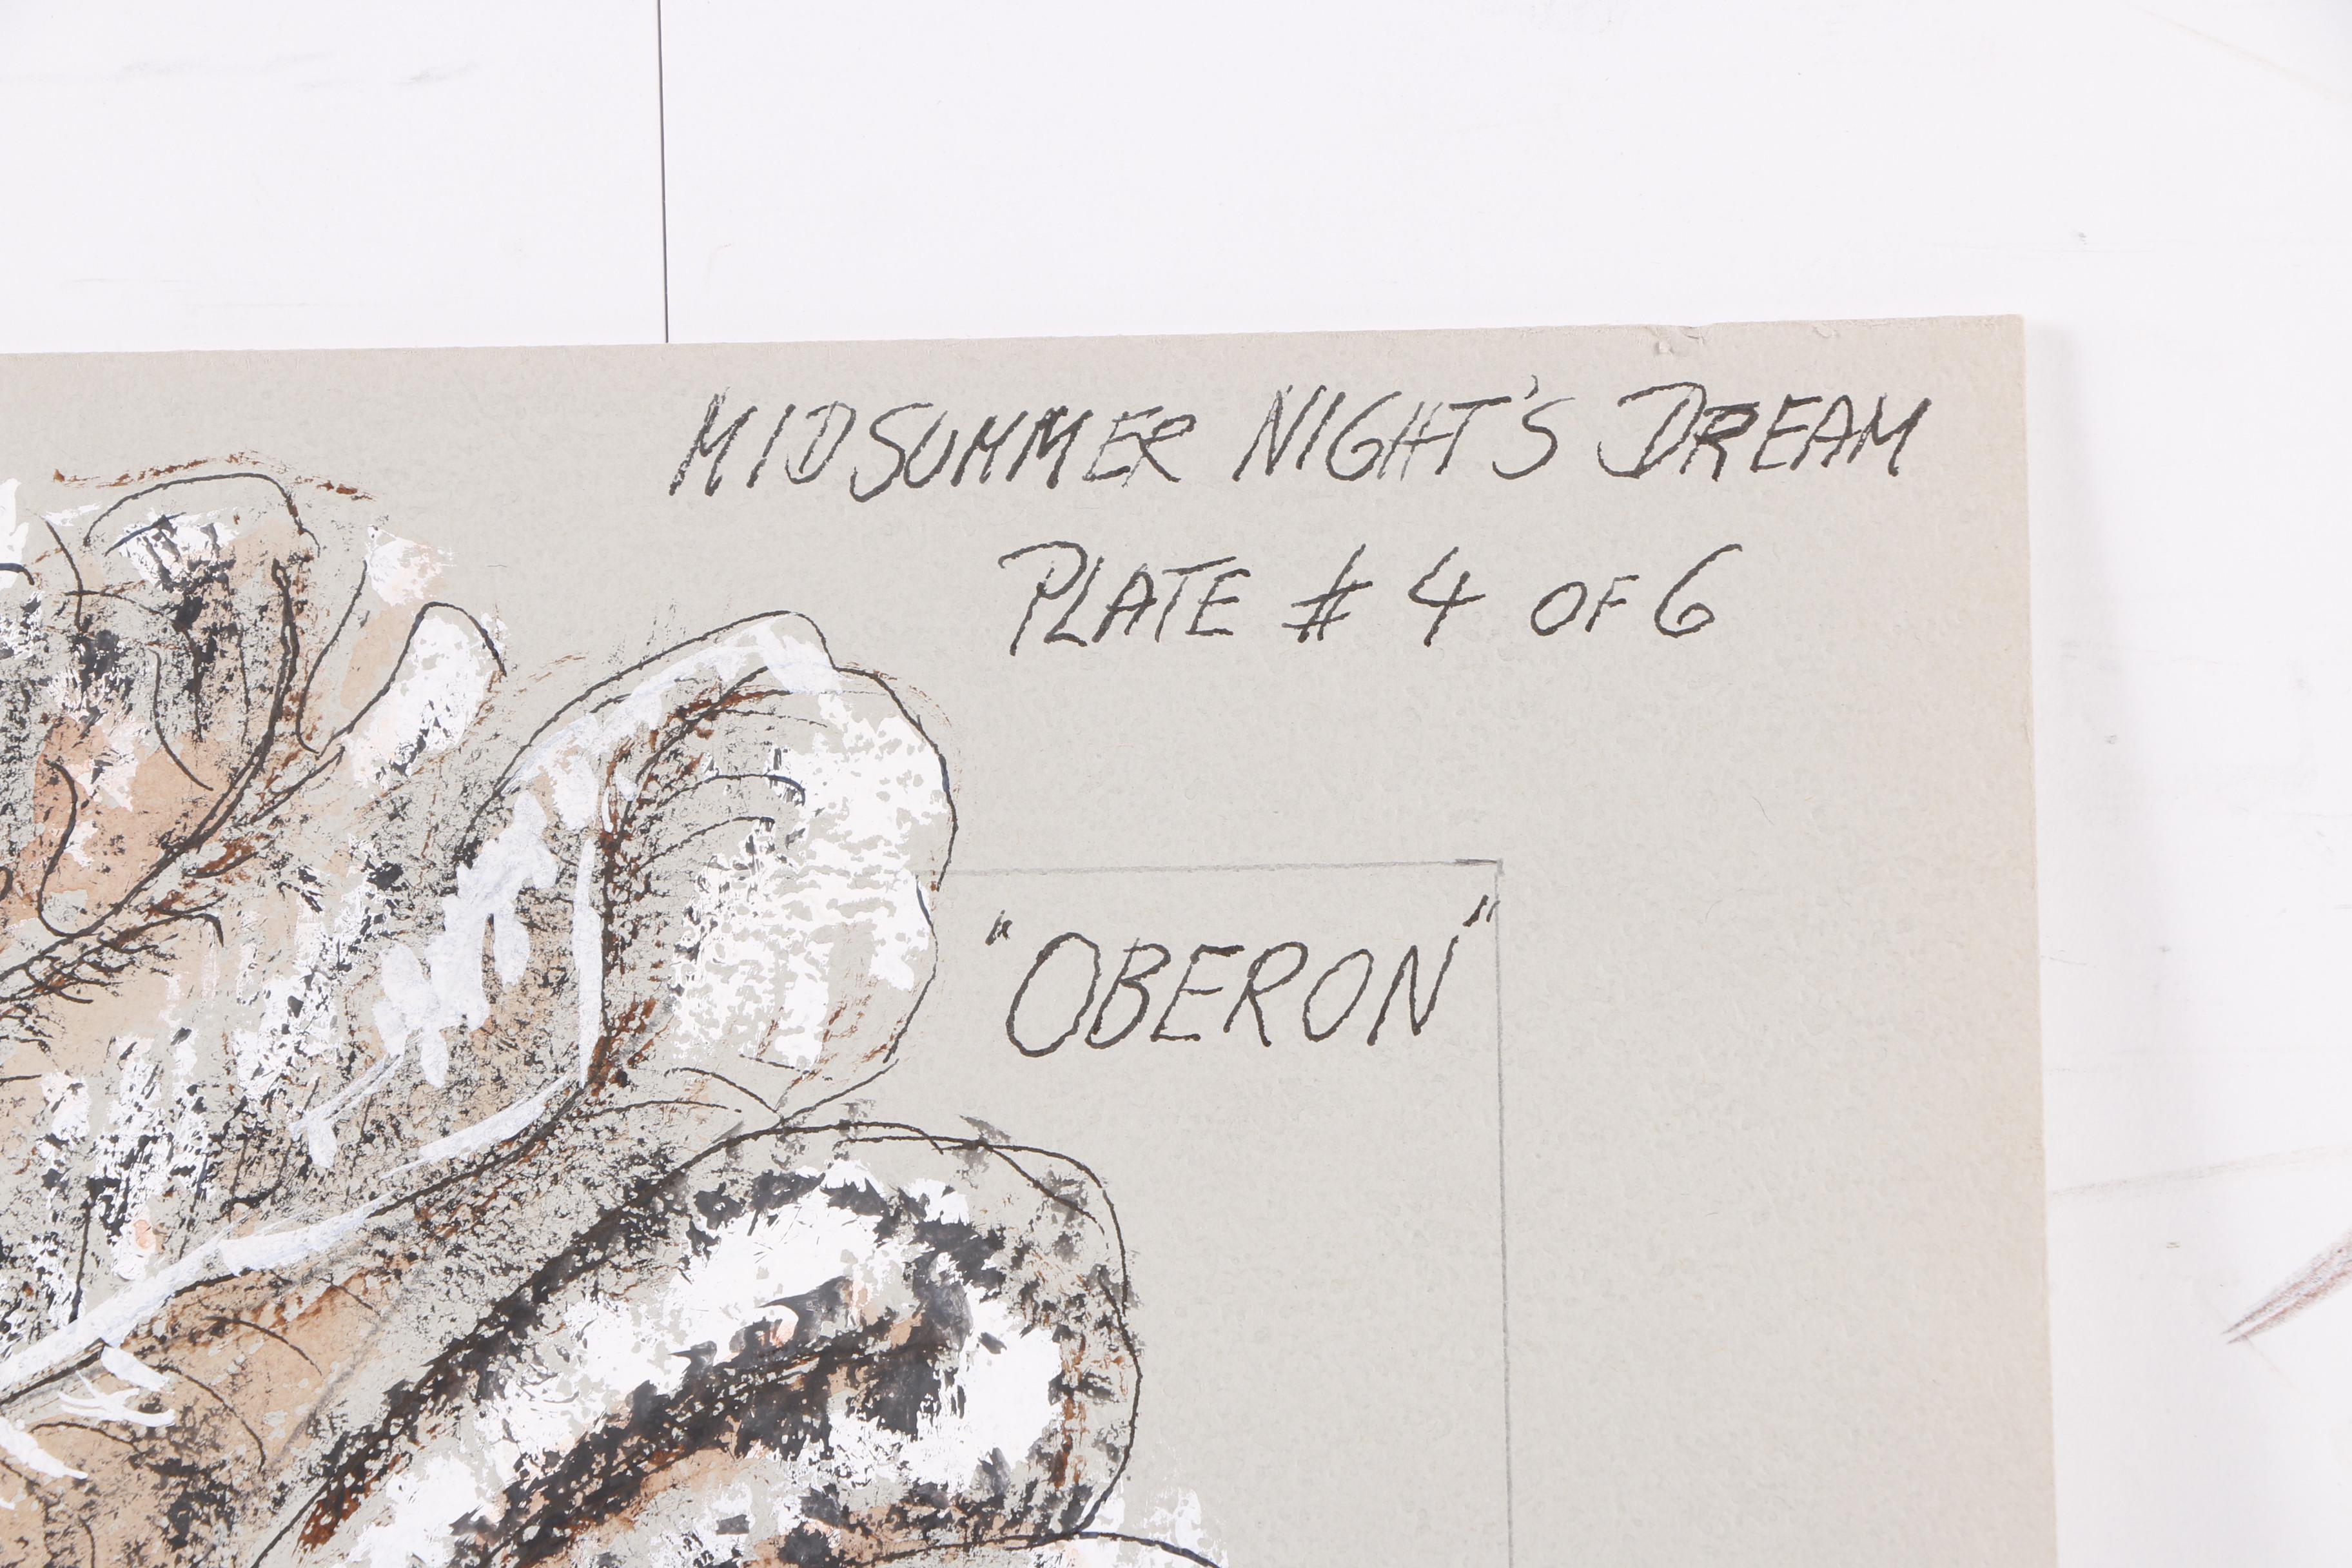 MIDSUMMER NIGHT'S DREAM
PLATE # 4 OF 6
"OBERON"